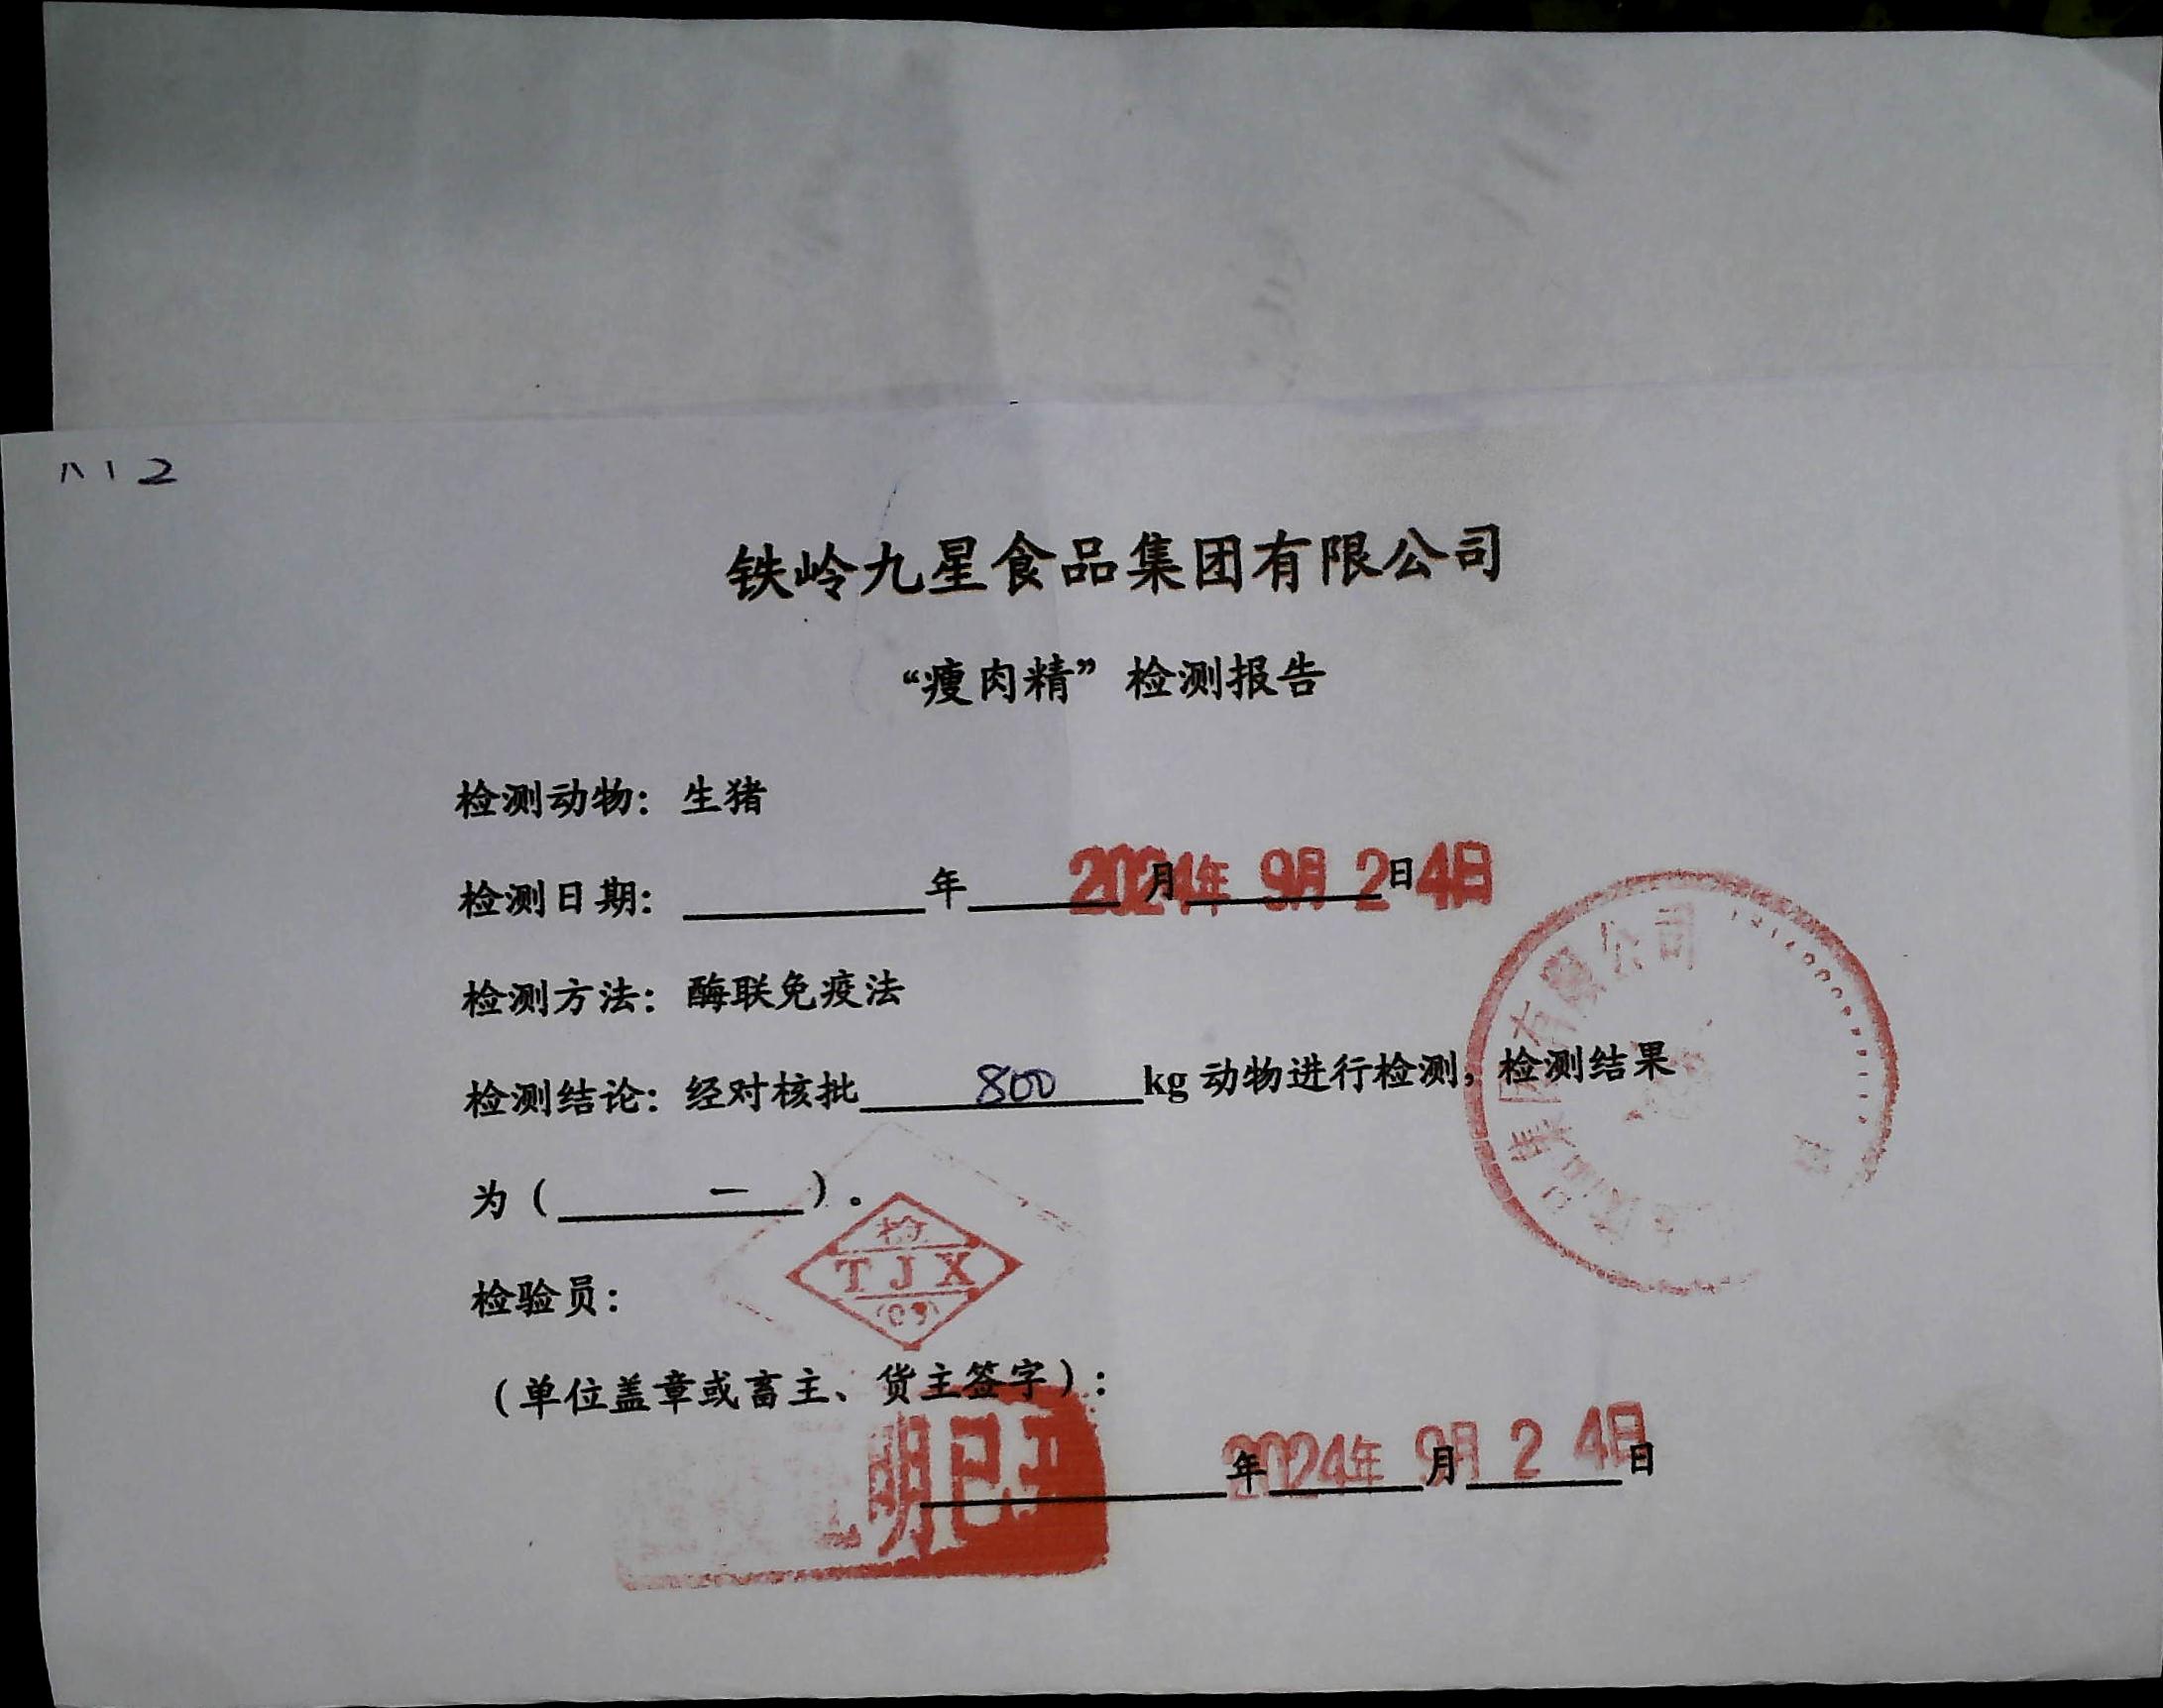 铁岭九星食品集团有限公司
“瘦肉精”检测报告
检测动物：生猪
检测日期：年月日
2024年 9月 24日
检测方法：酶联免疫法
检测结论：经对核批 800 kg 动物进行检测，检测结果
为（ — ）。
检
TJX
检验员：
（单位盖章或畜主、货主签字）：
年月日
2024年 9月 24日
集团有限公司
明